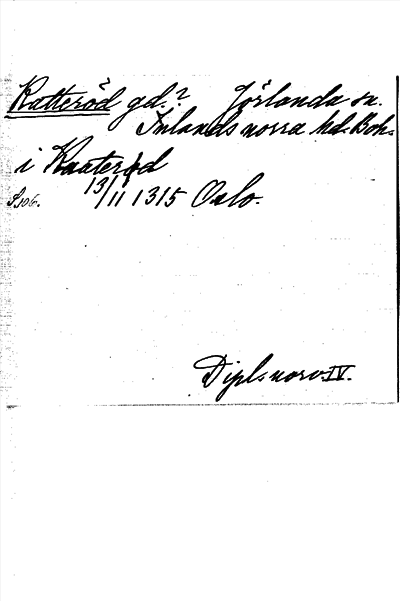 Katteröd gd.? Jörlanda sn.
Inlands norra hd. Boh.
i Knaterod
S. 106. 13/11 1315 Oslo.
Dipl. norv. IV.